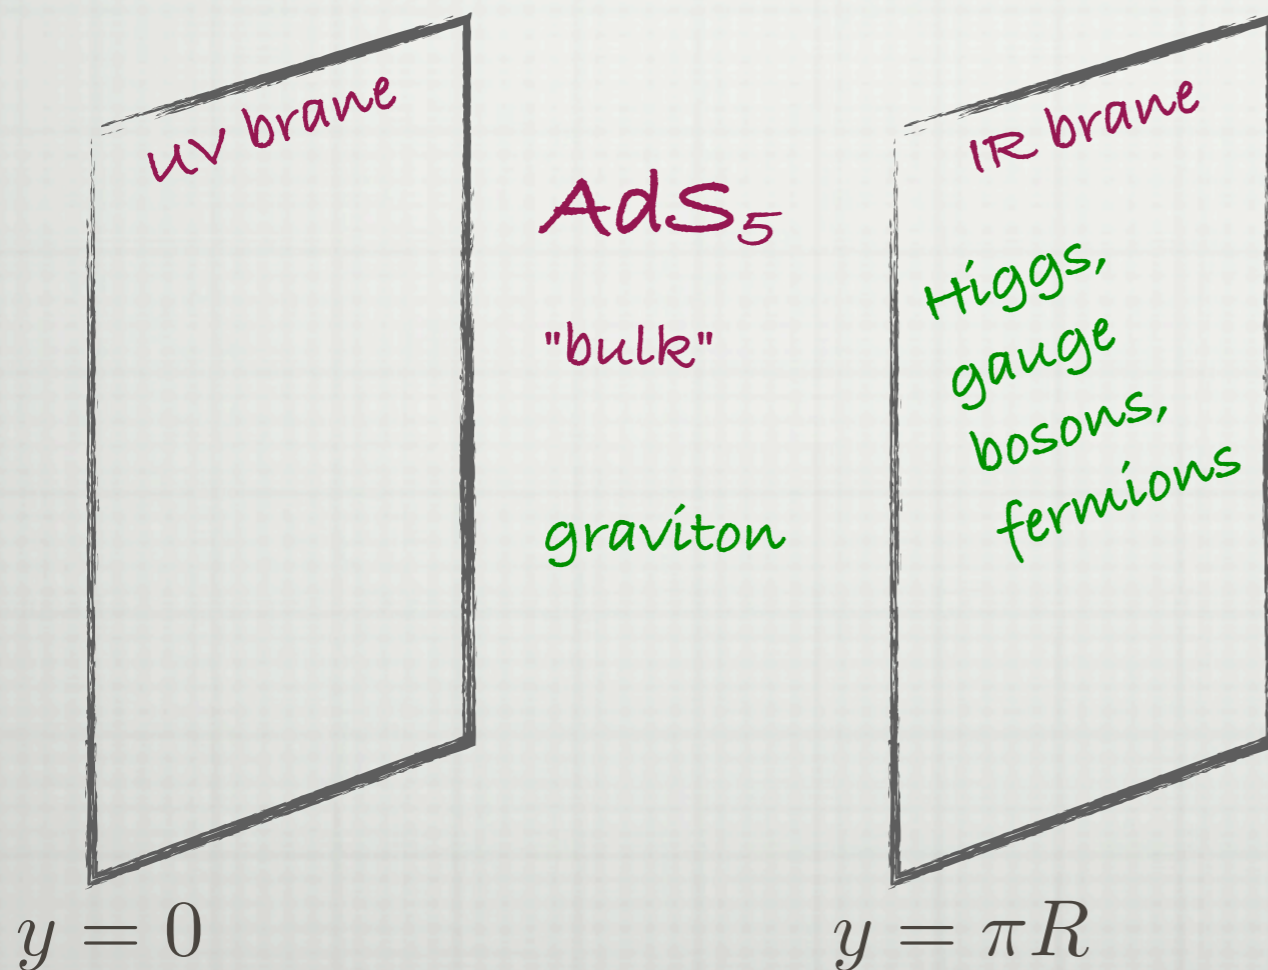 UV brane
AdS₅
"bulk"
graviton
IR brane
Higgs,
gauge
bosons,
fermions
y = 0
y = πR